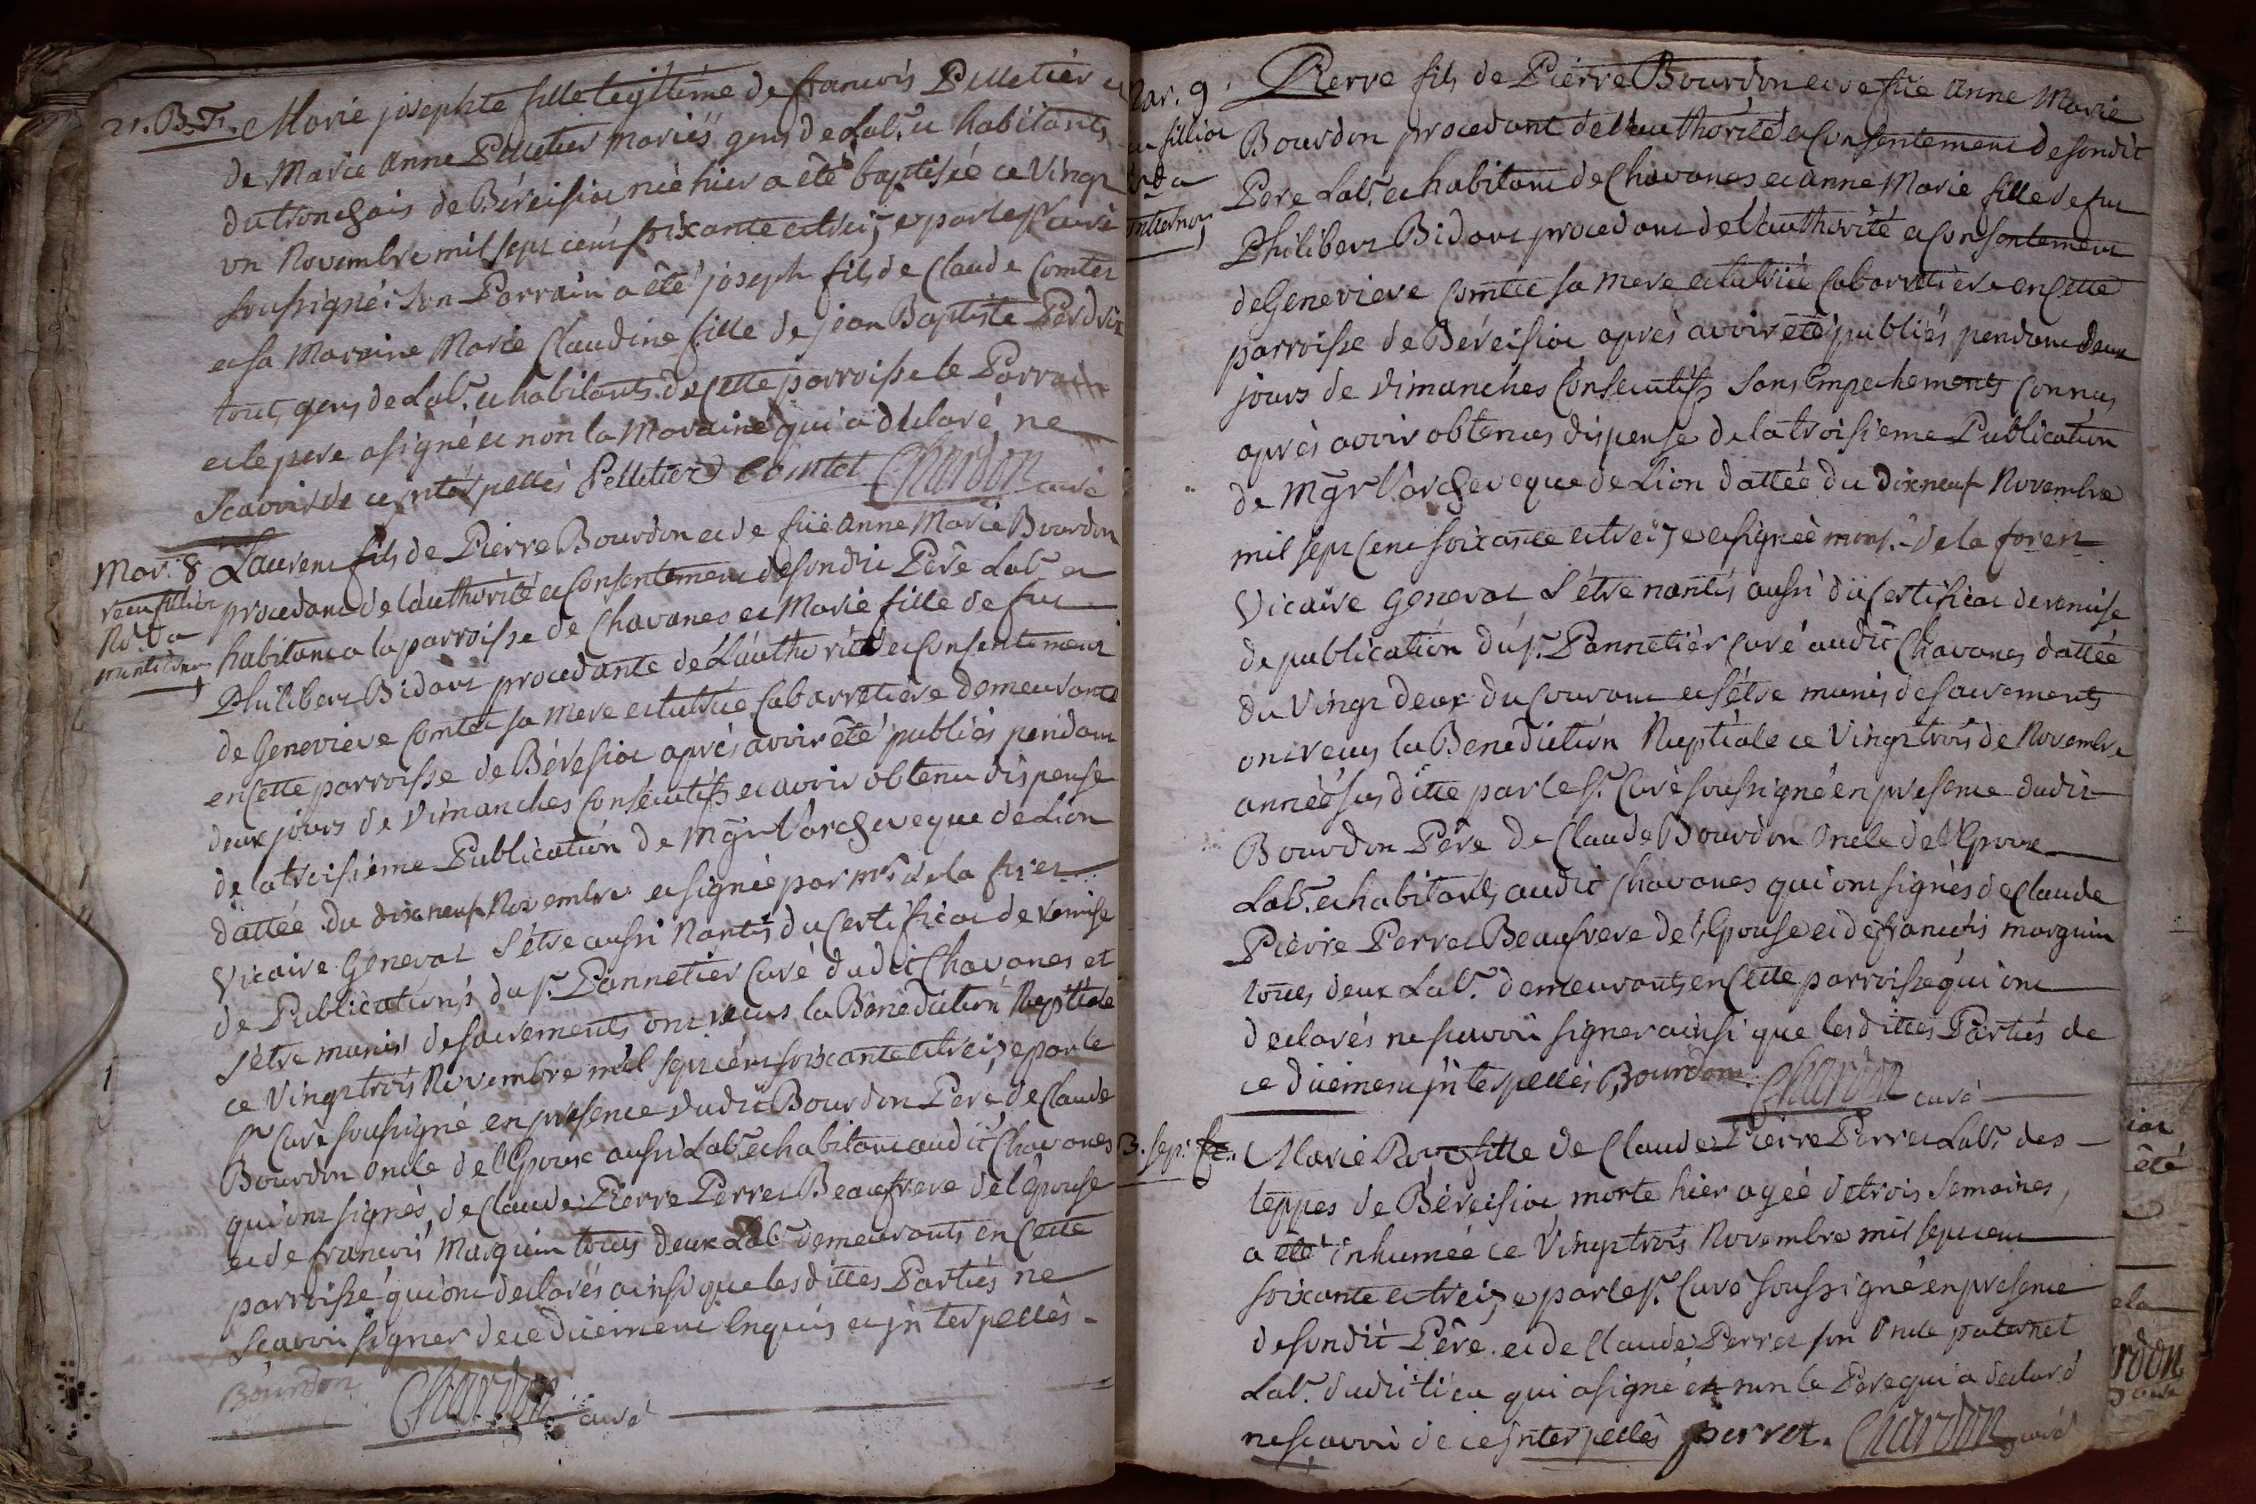 21. B. F. Marie josephte fille legitime de francois Pelletier et
de Marie Anne Pelletier Mariés gens de Labr. et habitants
du tronchais de Béreisiat née hier a été baptisée ce Vingt
un Novembre mil sept cent soixante et treize par le Sr curé
soussigné: son Parrain a été joseph fils de Claude Comtet
et sa Maraine Marie Claudine fille de jean Baptiste Perdrix
tous gens de Labr. et habitants de cette parroisse le Parrain
et le pere a signé et non la Maraine qui a déclaré ne
Scavoir de ce interpellés Pelletier Comtet Chardon curé
Mar. 8 Laurent fils de Pierre Bourdon et de füe Anne Marie Bourdon
procedant de l'authorité et Consentement de sondit Pêre Labr et
habitant a la parroisse de Chavanes et Marie fille de feu
Philibert Bidart procedante de L'authorité et Consentement
de Genevieve Comtet sa Mere et tutrice Cabarretiere demeurante
en Cette parroisse de Bérésiat aprés avoir été publiés pendant
deux jours de dimanches Consécutifs et avoir obtenu dispense
de la troisiéme Publication de Mgr l'archeveque de Lion
dattée du dixneuf Novembre et signée par mr de la forest
Vicaire General s'étre aussi Nantis du Certificat de remise
de Publications du Sr. Pannetier Curé dudit Chavanes et
s'étre munis de sacrements ont recus la Bénédiction Nuptiale
ce Vingt trois Novembre mil sept cent soixante et treize par le
Sr Curé soussigné en presence dudit Bourdon Pere, de Claude
Bourdon Oncle de l'Epoux aussi Labr et habitant audit Chavanes
qui ont signés, de Claude Pierre Perret Beaufrere de l'épouse
et de francois Marguin tous deux Labr demeurants en Cette
parroisse qui ont déclarés ainsi que les dittes Parties ne
Scavoir signer de ce düement Enquis et interpellés -
Bourdon Chardon curé
Mar. 9 Pierre fils de Piérre Bourdon et de füe Anne Marie
Bourdon procedant de l'authorité et Consentement de sondit
Pere Labr. et habitant de Chavanes et Anne Marie fille de feu
Philibert Bidart procedant de l'authorité et Consentement
de Genevieve Comtet sa Mere et tutrice Cabarretiere en Cette
parroisse de Béreisiat aprés avoir été publiés pendant deux
jours de dimanches Consecutifs sans Empechements Connus
aprés avoir obtenues dispense de la troisieme Publication
de Mgr l'archeveque de Lion dattée du dixneuf Novembre
mil sept Cent soixante et treize et signée monsr. de la forest
Vicaire General S'étre nantis aussi du Certificat de remise
de publication du Sr. Pannetiér Curé audit Chavanes dattée
du Vingt deux du Courant et s'étre munis de sacrements
ont recus la Benediction Nuptiale ce Vingt trois de Novembre
année susditte par le Sr. Curé soussigné en presence dudit
Bourdon Pére de Claude Bourdon Oncle de l'Epoux
Labr. et habitants audit Chavanes qui ont signés de Claude
Piérre Perret Beaufrere de l'Epouse et de francois marguin
tous deux Labr. demeurants en Cette parroisse qui ont
declarés ne scavoir signer ainsi que les dittes Parties de
ce düement interpellés Bourdon Chardon curé
3. sep. Marie fille de Claude Pierre Perret Labr des
teppes de Béreisiat morte hier agée de trois Semaines,
a été inhumée ce Vingt trois Novembre mil sept cent
soixante et treize par le Sr. Curé soussigné en presence
de sondit Pére. et de Claude Perret son Oncle paternel
Labr. dudit lieu qui a signé et non le Pere qui a déclaré
ne scavoir de ce interpellés perret. Chardon curé